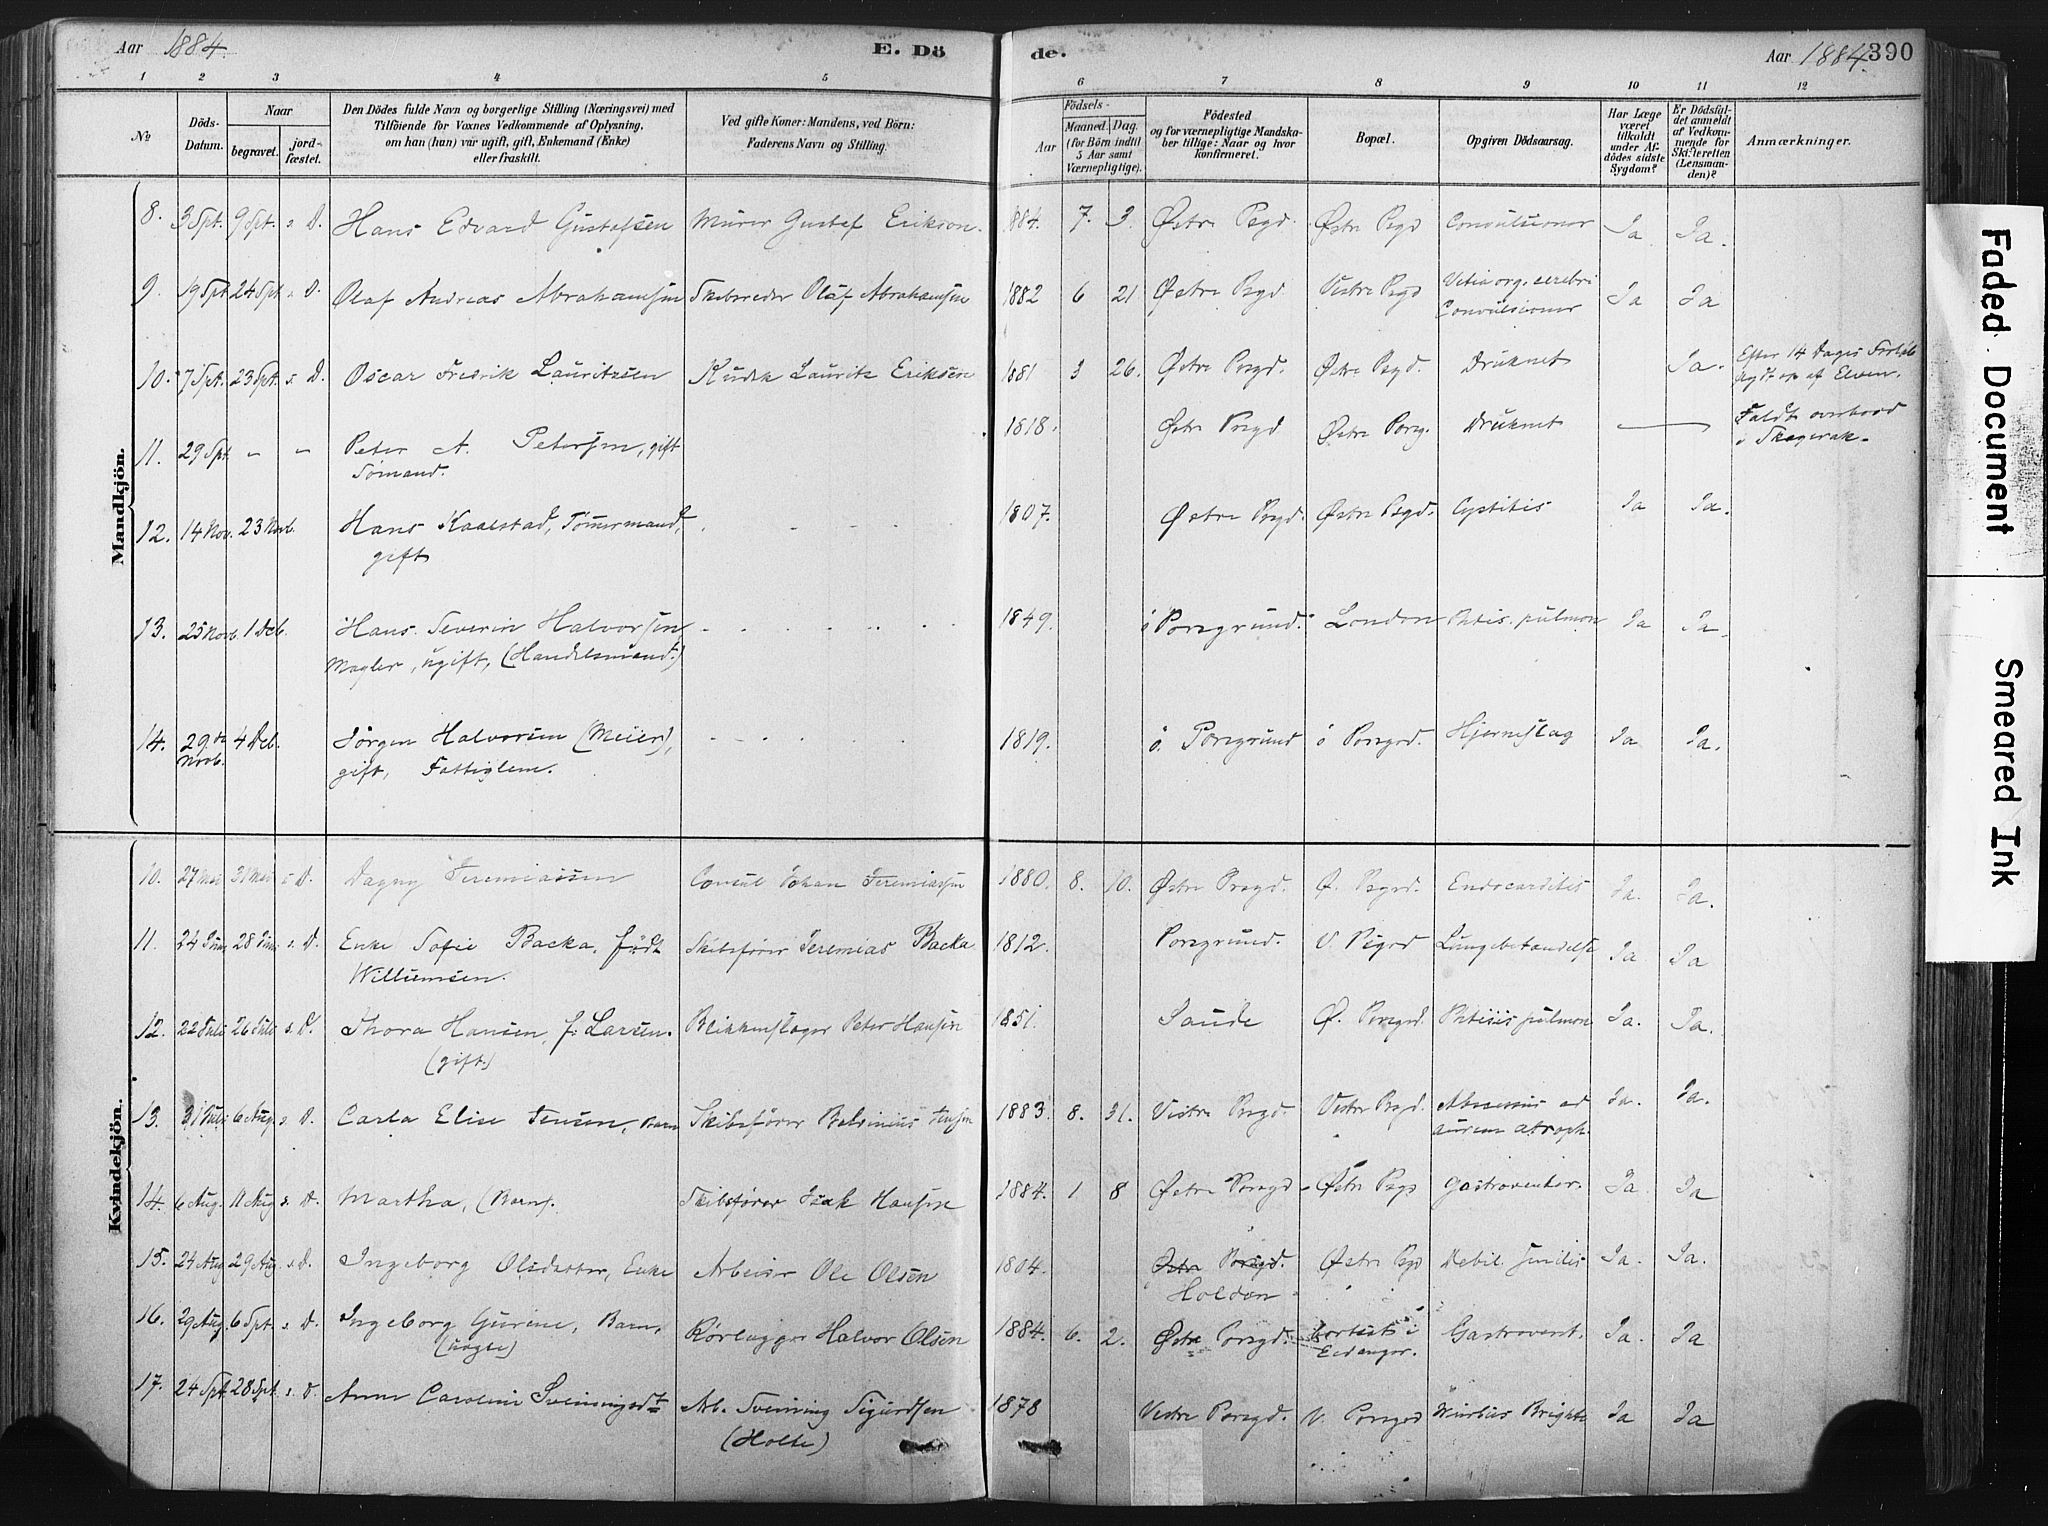 Aar 1884. E. Dö de. Aar 1884. 390
1 2 3 4 5 6 7 8 9 10 11 12
No
Döds-Datum.
Naar begravet. jordfæstet.
Den Dödes fulde Navn og borgerlige Stilling (Næringsvei) med
Tilföiende for Voxnes Vedkommende af Oplysning,
om han (hun) var ugift, gift, Enkemand (Enke)
eller fraskilt.
Ved gifte Koner: Mandens, ved Börn:
Faderens Navn og Stilling.
Födsels-
Aar Maaned. Dag.
(for Börn indtil
5 Aar samt
Værnepligtige).
Födested
og for værnepligtige Mandska-
ber tillige: Naar og hvor
konfirmeret.
Bopæl.
Opgiven Dödsaarsag.
Har Læge
været
tilkaldt
under Af-
dödes sidste
Sygdom?
Er Dödsfal-
det anmeldt
af Vedkom-
mende for
Skifteretten
(Lensman-
den)?
Anmærkninger.
Mandkjön.
8. 3 Spt. 9 Spt. s. D. Hans Edvard Gustafsen Murer Gustaf Erikson. 1884. 7. 3. Østre Psgd. Østre Psgd Convulsioner Ja Ja.
9. 19 Spt. 24 Spt s. D. Olaf Andreas Abrahamsen Skibsreder Olaf Abrahamsen 1882 6 21 Østre Psgd Vestre Psgd Vitia org. cerebri Ja Ja
Convulsioner
10. 7 Spt. 23 Spt. s. D. Oscar Fredrik Lauritzsen Kudsk Lauritz Eriksen 1881 3 26. Østre Porsgd. Østre Psgd. Druknet Ja. Efter 14 Dages Forløb
af Elven.
11. 29 Spt. - - Peter A. Petersen, gift 1818. Østre Prsgd Østre Porsg. Druknet — Faldt overbord
Sømand. i Skagerak.
12. 14 Nov. 23 Novb. Hans Kaalstad, Tømmermand, 1807. Østre Psgd. Østre Psgd. Cystitis Ja Ja.
gift
13. 25 Novb. 1 Dcb. Hans Severin Halvorsen 1849. ö Porsgrund. London Phtis. pulmon Ja Ja.
Mægler, ugift, (Handelsmand.)
14. 29de Novb. 4 Dcb. Jørgen Halvorsen (Meier), 1819. ö. Porsgrund ö Porsgrd. Hjerneslag Ja Ja.
gift, Fattiglem.
Kvindekjön.
10. 27 Mai 31 Mai s. D. Dagny Jeremiassen Consul Johan Jeremiassen 1880. 8. 10. Østre Prsgd. Ø. Psgrd. Endocarditis Ja. Ja.
11. 24 Juni 28 Juni s. D. Enke Sofie Backa, født Skibsfører Jeremias Backa 1812. Porsgrund. V. Psgrd Lungebetændelse Ja Ja
Willumsen.
12. 22 Juli 26 Juli s. D. Thora Hansen, f. Larsen. Blikkenslager Peter Hansen 1851. Saude Ø. Porsgrd. Phtisis pulmon Ja. Ja.
(gift.)
13. 31 Juli 6 Aug. s. D. Carla Elise Jensen, Barn Skibsfører Jensen 1883. 8. 31. Vestre Porsgd. Vestre Psgd. Abscessus ad Ja. Ja.
aurem atroph.
14. 6 Aug. 11 Aug s. D. Martha, (Barn). Skibsfører Isak Hansen 1884. 1 8 Østre Porsgd Østre Psgd Gastroenter. Ja. Ja
15. 24 Aug 29 Aug. s. D. Ingeborg Olsdatter, Enke Arbeider Ole Olsen 1804. Østre Porsgd. Østre Psgd Debil. senilis Ja. Ja.
Holden
16. 29 Aug. 6 Spt. s. D. Ingeborg Gurine, Barn, Rørlægger Halvor Olsen 1884. 6. 2. Østre Porsgd. bortsat i Gastroent. Ja. Ja
(uægte) Eidanger.
17. 24 Spt. 28 Spt. s. D. Anna Caroline Sveinungsdt Arb. Sveinung Sigurdsen 1878 Vestre Porsgd. V. Porsgrd Morbus Brighti Ja Ja
(Holte)
Faded Document
Smeared Ink